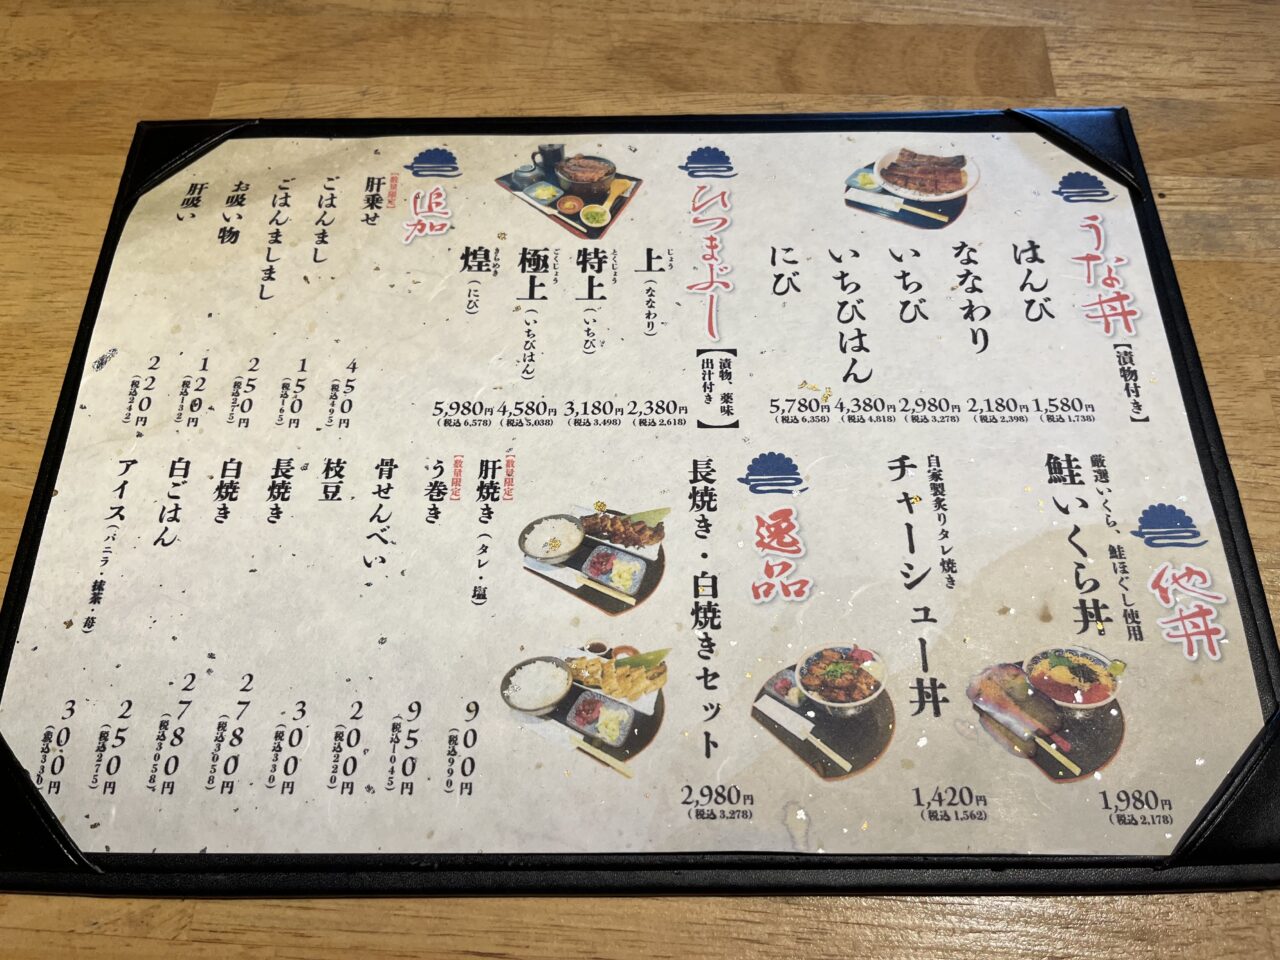 うな丼
【漬物付き】
はんび
1,580円
(税込1,738)
ななわり
2,180円
(税込2,398)
いちび
2,980円
(税込3,278)
いちびはん
4,380円
(税込4,818)
にび
5,780円
(税込6,358)
ひつまぶし
【漬物、薬味
出汁付き】
上
じょう
(ななわり)
2,380円
(税込2,618)
特上
とくじょう
(いちび)
3,180円
(税込3,498)
極上
ごくじょう
(いちびはん)
4,580円
(税込5,038)
煌
きらめき
(にび)
5,980円
(税込6,578)
追加
【数量限定】
肝乗せ
450円
(税込495)
ごはんまし
150円
(税込165)
ごはんましまし
250円
(税込275)
お吸い物
120円
(税込132)
肝吸い
220円
(税込242)
他丼
厳選いくら、鮭ほぐし使用
鮭いくら丼
1,980円
(税込2,178)
自家製炙りタレ焼き
チャーシュー丼
1,420円
(税込1,562)
逸品
長焼き・白焼きセット
2,980円
(税込3,278)
【数量限定】
肝焼き(タレ・塩)
900円
(税込990)
【数量限定】
う巻き
950円
(税込1045)
骨せんべい
200円
(税込220)
枝豆
300円
(税込330)
長焼き
2780円
(税込3058)
白焼き
2780円
(税込3058)
白ごはん
250円
(税込275)
アイス(バニラ・抹茶・苺)
300円
(税込330)